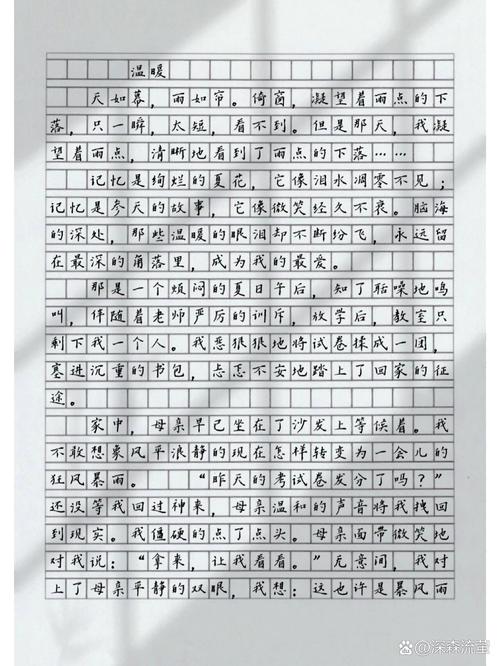 温暖
天如幕，雨如帘。倚窗，凝望着雨点的下
落，只一瞬，太短，看不到。但是那天，我凝
望着雨点，清晰地看到了雨点的下落……
记忆是绚烂的夏花，它像泪水凋零不见；
记忆是参天的故事，它像微笑经久不衰。脑海
的深处，那些温暖的眼泪却不断纷飞，永远留
在最深的角落里，成为我的最爱。
那是一个烦闷的夏日午后，知了聒噪地鸣
叫，伴随着老师严厉的训斥，放学后，教室只
剩下我一个人。我恶狠狠地将试卷揉成一团，
塞进沉重的书包，忐忑不安地踏上了回家的征
途。
家中，母亲早已坐在了沙发上等候着。我
不敢想象风平浪静的现在怎样转变为一会儿的
狂风暴雨。　　“昨天的考试卷发分了吗？”
还没等我回过神来，母亲温和的声音将我拽回
到现实。我僵硬的点了点头。母亲面带微笑地
对我说：“拿来，让我看看。”无意间，我对
上了母亲平静的双眼，我想：这也许是暴风雨
百度 @深森流萤